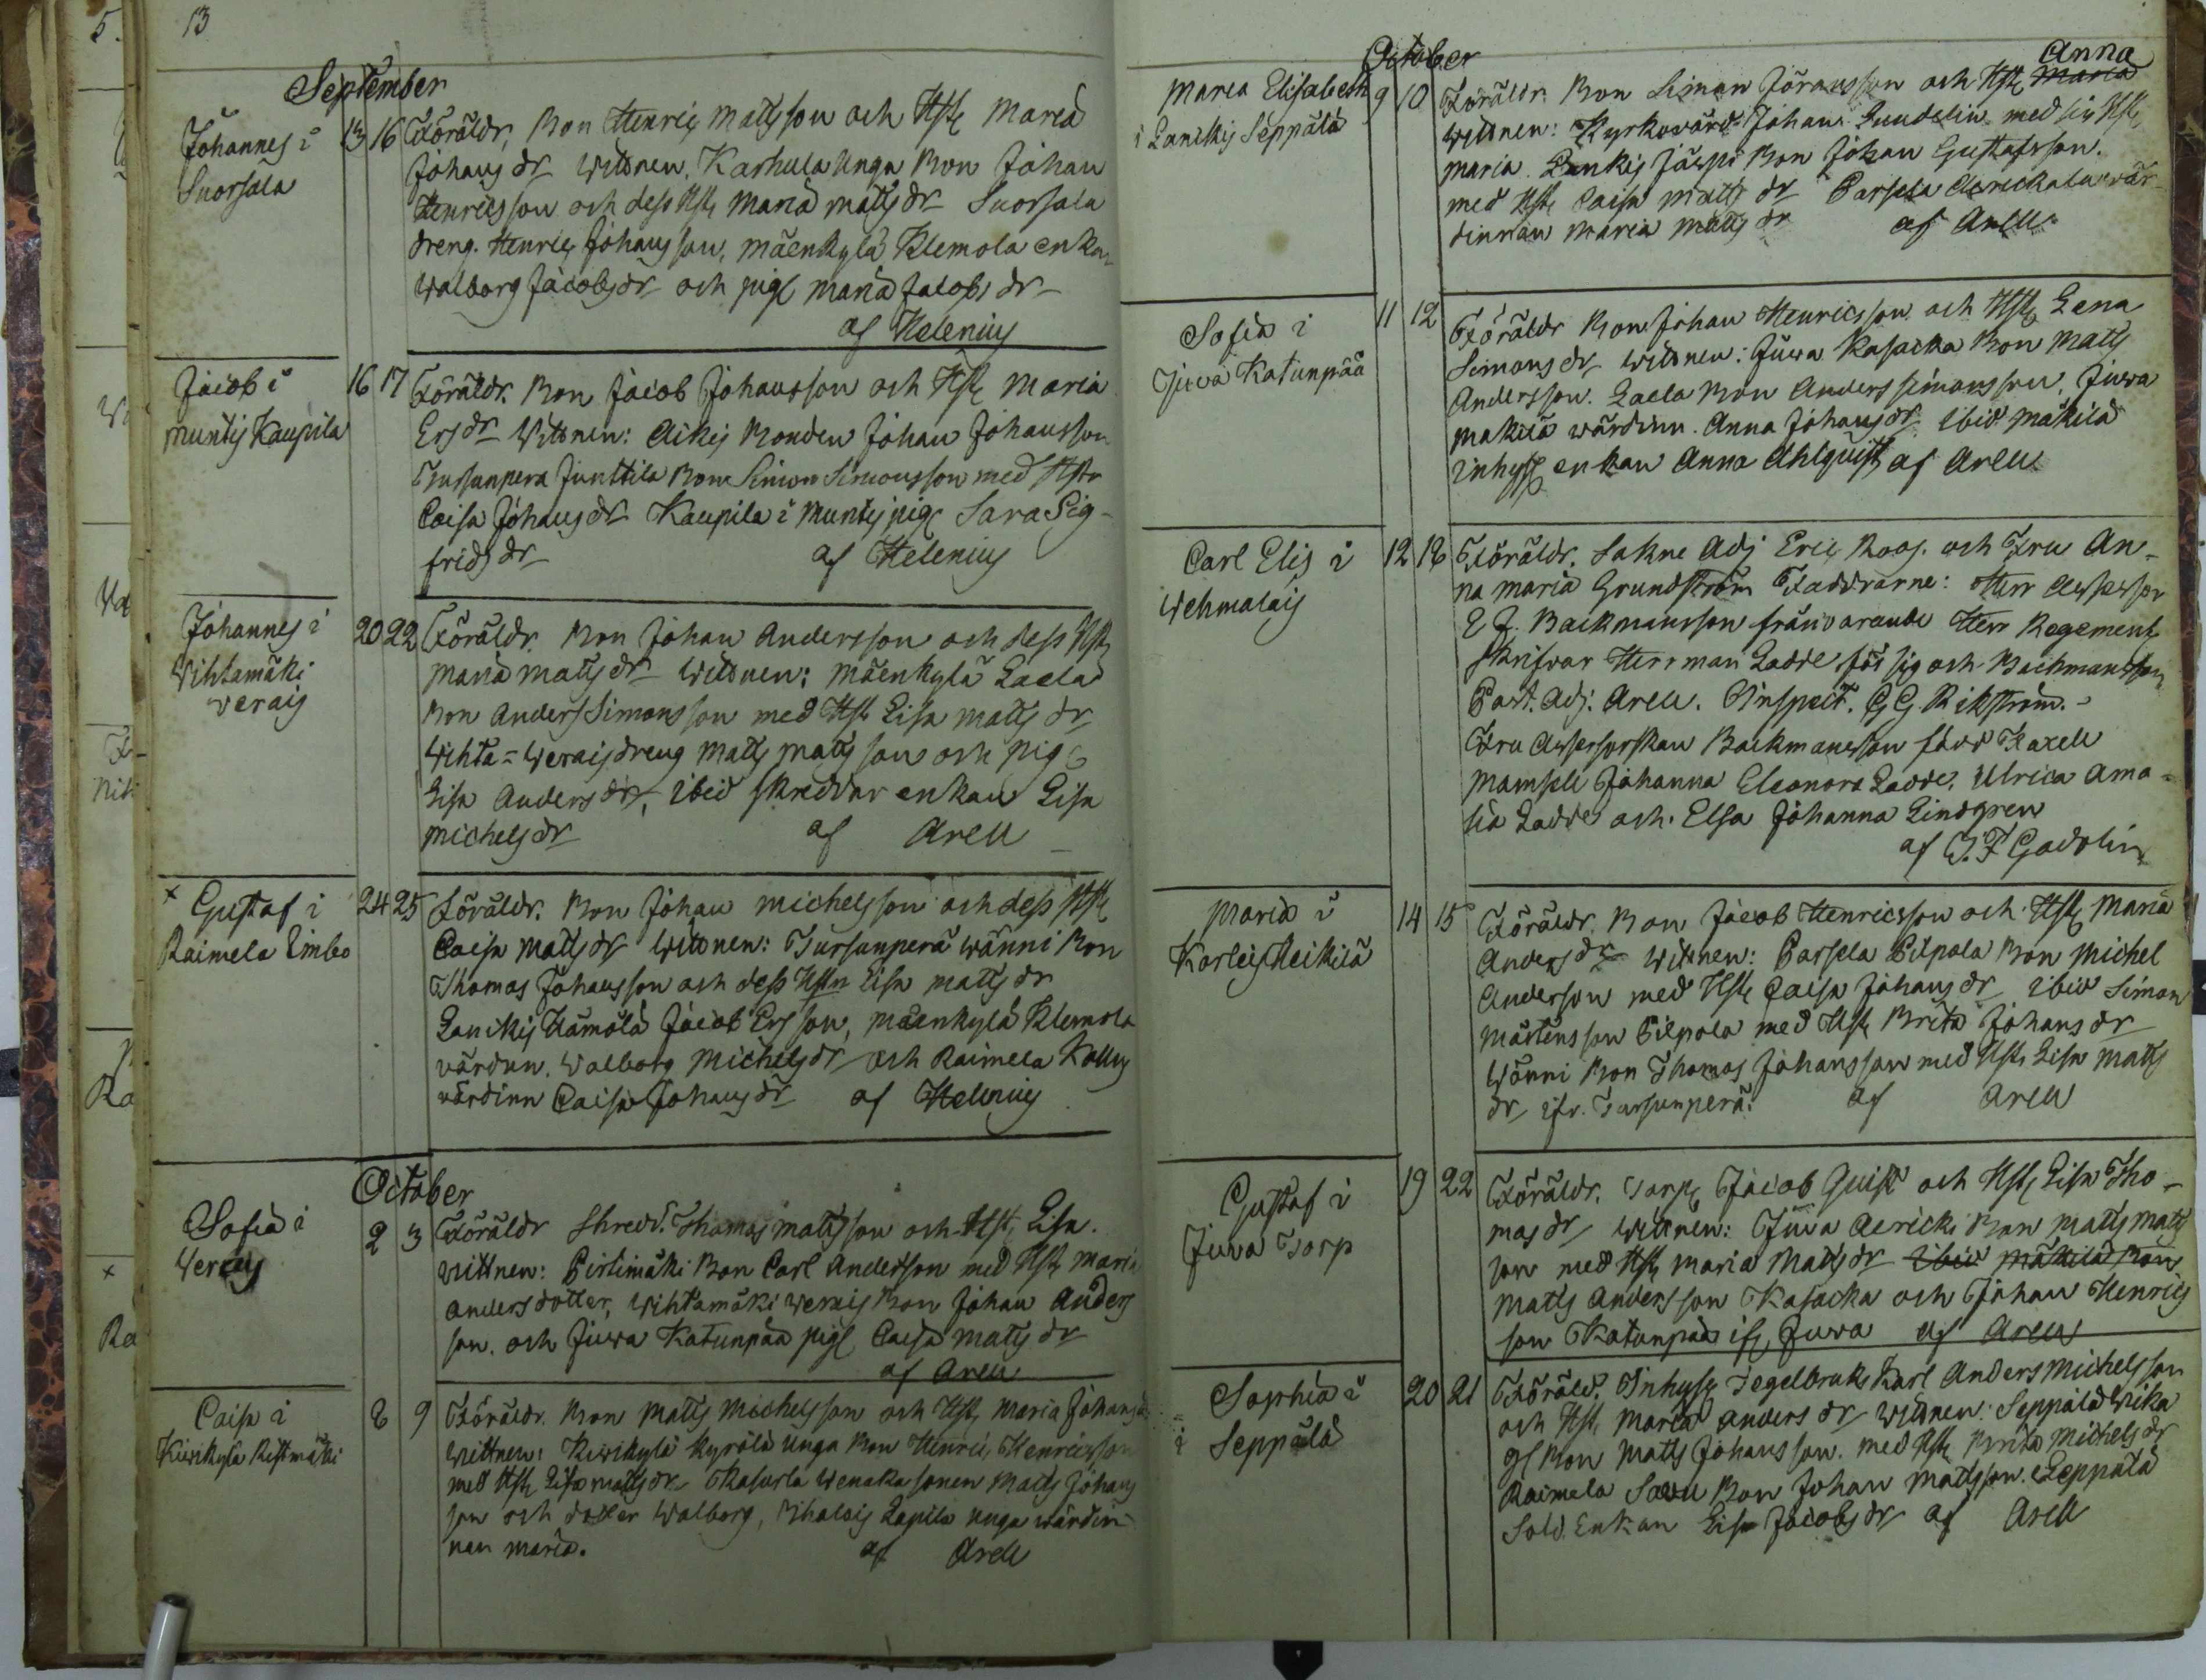 13
September
Johannes i
Suorsala
13 16 Föräldr, Bon Henric Mattsson och Hst Maria
Johans dr Wittnen. Karhula Unga Bon Johan
Henricsson och dess Hst Maria Matts dr Suorsala
dreng. Henric Johansson, Mäenkylä Klemola enkan
Walborg Jacobs dr och pig Maria Jacobs dr
af Helenius
Jacob i
Muntis Kaupila
16 17 Föräldr. Bon Jacob Johansson och Hst Maria
Ers dr Vittnen: Aikis Bonden Johan Johansson
Tursunpera Junttila Bon Simon Simonsson med Hstr
Caisa Johans dr Kaupila i Muntis pig Sara Sig-
frids dr af Helenius
Johannes i
Vihtamäki
Verais
20 22 Föräldr. Bon Johan Andersson och dess Hst
Maria Matts dr Wittnen: Mäenkylä Laela
Bon Anders Simonsson med Hst Lisa Matts dr
Wihta= Werais dreng Matts Mattsson och pig
Lisa Anders dr, ibid skreddar enkan Lisa
Michels dr af Arell
x Gustaf i
Raimela Simbo
24 25 Föräldr. Bon Johan Michelsson och dess Hst
Caisa Matts dr Wittnen: Tursunperä Wänni Bon
Thomas Johansson och dess Hstn Lisa Matts dr
Lanckis Hämölä Jacob Ersson, Mäenkylä Klemola
värdinn. Walborg Michels dr och Raimela Kolly
värdinn Caisa Johans dr af Helenius
October
Sofia i
Verais
2 3 Föräldr Skredd. Thomas Mattsson och Hst, Lisa.
Vittnen: Pirtimäki Bon Carl Andersson med Hst Maria
Andersdotter, Wihtamäki Werais Bon Johan Anders
son. och Juva Katunpää pig Caisa Matts dr
af Arell
Caisa i
Kiwikylä Ristimäki
8 9 Föräldr. Bon Matts Michelsson och Hst, Maria Johans dr
Wittnen: Kiwikylä Kyrölä Unga Bon Henric Henricsson
med Hst Lisa Matts dr Kasurla Wenaka sonen Matts Johans
son och dotter Walborg, Lapila unga wärdin-
nan Maria. af Arell
October
Maria Elisabeth
i Lanckis Seppälä
9 10 Föräldr. Bon Simon Jöransson och Hst Maria Anna
Wittnen: Kyrkovärd Johan Lundelin med sin Hst,
Maria. Lankis Jäspi Bon Johan Gustafsson.
med Hst Caisa Matts dr Parsela Aerickala wär-
dinnan Maria Matts dr af Arell.
Sofia i
Juva Katunpää
11 12 Föräldr Bon Johan Henricsson och Hst Lena
Simons dr Wittnen: Juva Kasacka Bon Matts
Andersson. Laela Bon Anders Simonsson, Juva
Makilä wärdinn. Anna Johans dr ibid. Mäkilä
inhys enkan Anna Ahlquist af Arell
Carl Elis i
Wehmalais
12 18 Föräldr. Sakne Adj Eric Roos. och Fru An-
na Maria Grundström Faddrarne: Herr Assessor
E J. Backmansson frånvarande Herr Regements
skrifvar Herrman Ladde för sig och Backmansson
Past. Adj. Arell. Inspect. C G. Rikström.
Fru Assessorskan Backmansson född Faxell
Mamsell Johanna Eleonora Ladde. Ulrica Ama-
lia Ladde och. Elsa Johanna Lindgren
af J. F Gadolin
Maria i
Korleis Heikilä
14 15 Föräldr. Bon Jacob Henricsson och Hst Maria
Anders dr Wittnen: Parsela Pilpola Bon Michel
Anderson med Hst Caisa Johans dr ibid Simon
Mårtensson Pilpola med Hst Brita Johans dr
Wänni Bon Thomas Johansson med Hst Lisa Matts
dr ifr. Tursunperä. af Arell
Gustaf i
Juva Torp
19 22 Föräldr. Torp Jacob Quist och Hst Lisa Tho-
mas dr Wittnen: Juva Aericki Bon Matts Matts
son med Hst Maria Matts dr ibid Mäkilä Bon
Matts Andersson Kasacka och Johan Henrics
son Katunpää if Juva af Arell
Sophia i
i Seppälä
20 21 Föräld. Inhys Tegelbruks Karl Anders Michelsson
och Hst Maria Anders dr Wittnen: Seppälä Wika
gl Bon Matts Johansson. med Hst Brita Michels dr
Raimela Savu Bon Johan Mattsson. Seppälä
Sold. Enkan Lisa Jacobs dr af Arell